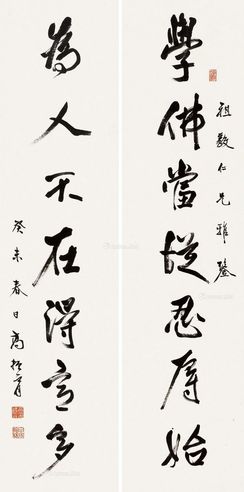 祖毅仁兄雅鑒
學佛當從忍辱始
為人不在得言多
癸未春日高振霄